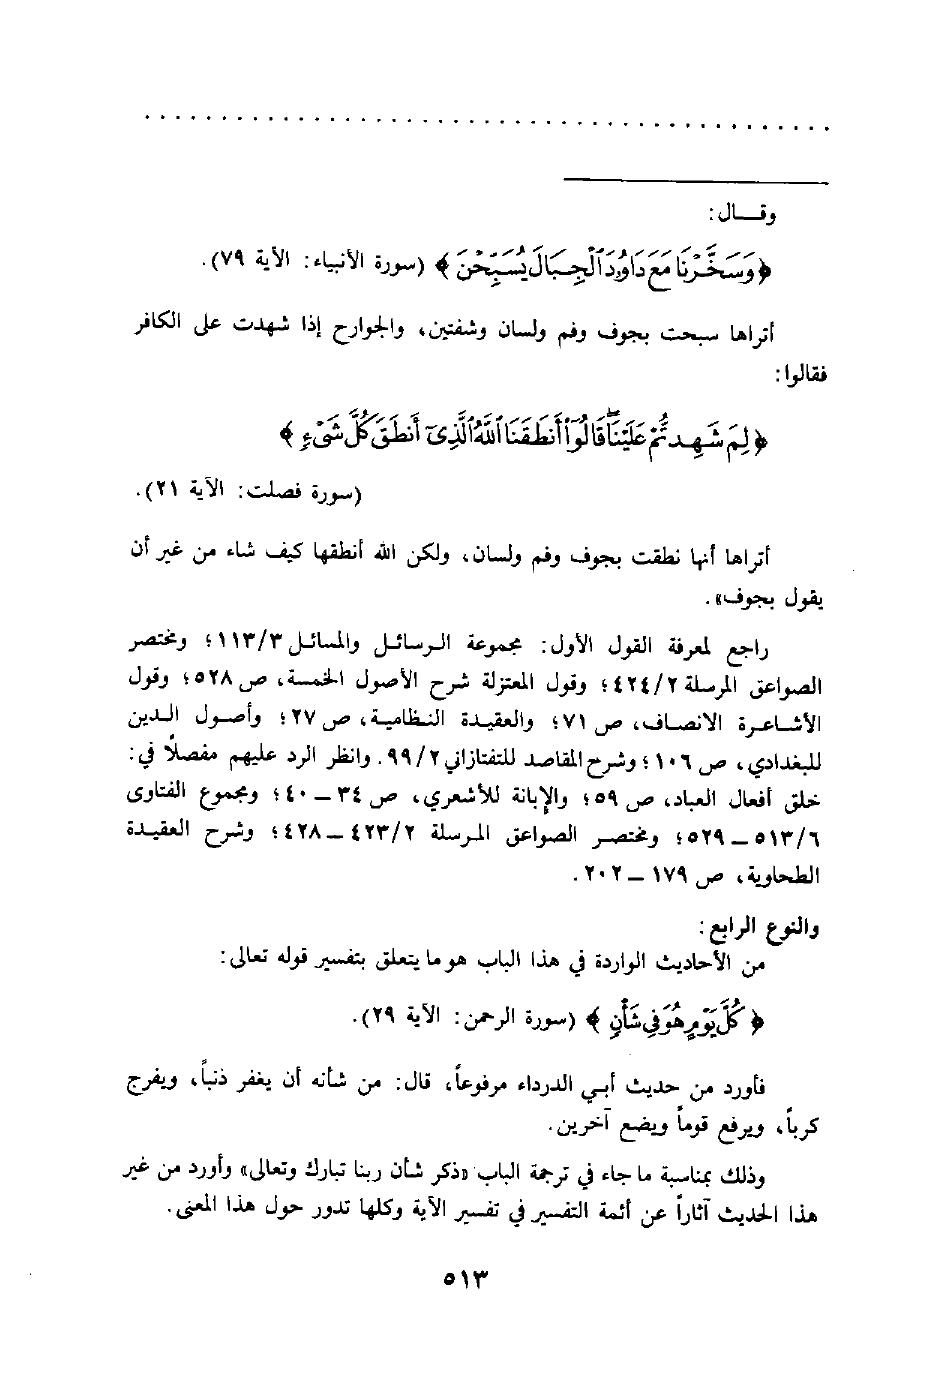 وقـــال:
﴿وَسَخَّرْنَا مَعَ دَاوُۥدَ ٱلْجِبَالَ يُسَبِّحْنَ﴾ (سورة الأنبياء: الآية ٧٩).
أتراها سبحت بجوف وفم ولسان وشفتين، والجوارح إذا شهدت على الكافر
فقالوا:
﴿لِمَ شَهِدتُّمْ عَلَيْنَا ۖ قَالُوٓا۟ أَنطَقَنَا ٱللَّهُ ٱلَّذِىٓ أَنطَقَ كُلَّ شَىْءٍ﴾
(سورة فصلت: الآية ٢١).
أتراها أنها نطقت بجوف وفم ولسان، ولكن الله أنطقها كيف شاء من غير أن
يقول بجوف».
راجع لمعرفة القول الأول: مجموعة الرسائل والمسائل ١١٣/٣؛ ومختصر
الصواعق المرسلة ٤٢٤/٢؛ وقول المعتزلة شرح الأصول الخمسة، ص ٥٢٨؛ وقول
الأشاعرة الانصاف، ص ٧١؛ والعقيدة النظامية، ص ٢٧؛ وأصول الدين
للبغدادي، ص ١٠٦؛ وشرح المقاصد للتفتازاني ٩٩/٢. وانظر الرد عليهم مفصلاً في:
خلق أفعال العباد، ص ٥٩؛ والإبانة للأشعري، ص ٣٤ – ٤٠؛ ومجموع الفتاوى
٥١٣/٦ – ٥٢٩؛ ومختصر الصواعق المرسلة ٤٢٣/٢ – ٤٢٨؛ وشرح العقيدة
الطحاوية، ص ١٧٩ – ٢٠٢.
والنوع الرابع:
من الأحاديث الواردة في هذا الباب هو ما يتعلق بتفسير قوله تعالى:
﴿كُلَّ يَوْمٍ هُوَ فِى شَأْنٍ﴾ (سورة الرحمن: الآية ٢٩).
فأورد من حديث أبي الدرداء مرفوعاً، قال: من شأنه أن يغفر ذنباً، ويفرج
كرباً، ويرفع قوماً ويضع آخرين.
وذلك بمناسبة ما جاء في ترجمة الباب «ذكر شأن ربنا تبارك وتعالى» وأورد من غير
هذا الحديث آثاراً عن أئمة التفسير في تفسير الآية وكلها تدور حول هذا المعنى.
٥١٣